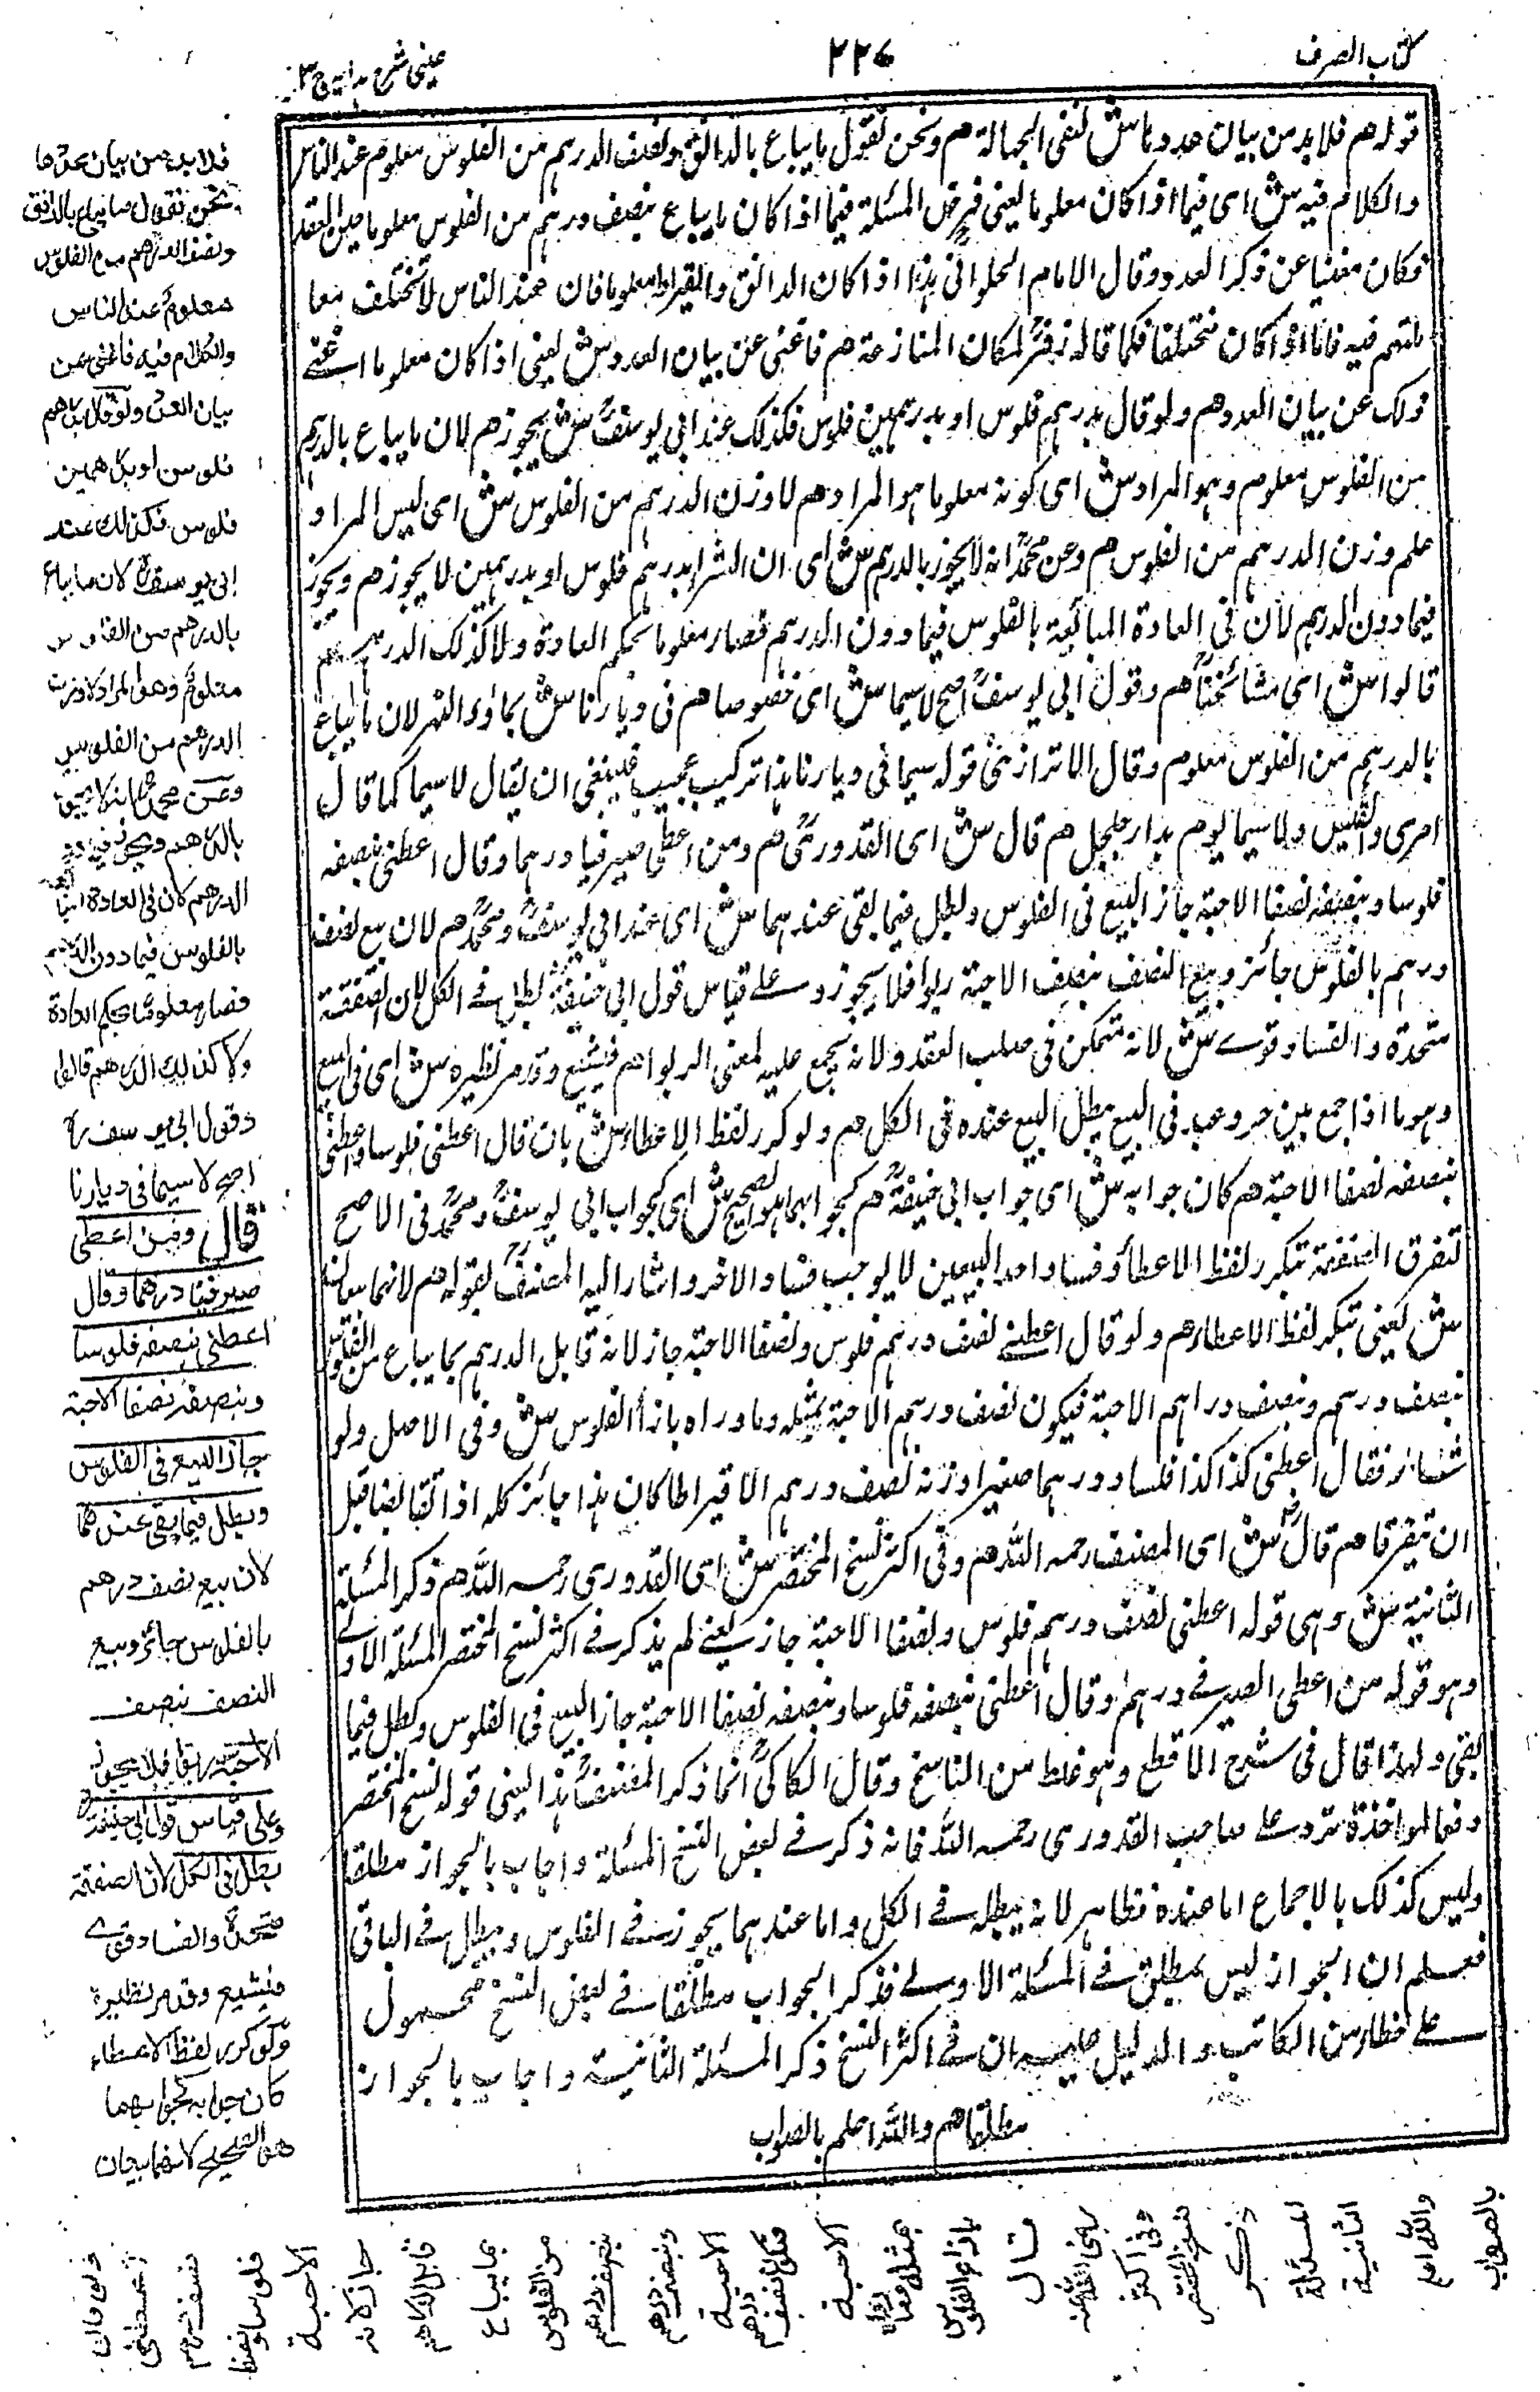 كتاب الصرف
٢٢٧
عینی شرح ہدایہ ج ٣
قوله هم فلا بد من بيان عددها ش لنفى الجهالة هم ونحن نقول ما يباع بالدانق ونصف الدرهم من الفلوس معلوم عند الناس
والكلام فيه ش اى فيما اذا كان معلوما يعنى فرض المسئلة فيما اذا كان ما يباع بنصف درهم من الفلوس معلوما حين العقد
فكان مغنيا عن ذكر العدد وقال الامام الحلوانى هذا اذا كان الدانق والقيراط معلوما فان عند الناس لا تختلف معا
ملتهم فيه فاما اذا كان مختلفا فكما قاله زفر لمكان المنازعة هم فاغنى عن بيان العدد ش يعنى اذا كان معلوما اغنے
ذلك عن بيان العدد هم ولو قال بدرهم فلوس او بدرهمين فلوس فكذلك عند ابى يوسف ش يجوز هم لان ما يباع بالدرهم
من الفلوس معلوم وهو المراد ش اى كونه معلوما هو المراد هم لا وزن الدرهم من الفلوس ش اى ليس المراد
علم وزن الدرهم من الفلوس هم وعن محمد انه لا يجوز بالدرهم ش اى ان الشراء بدرهم فلوس او بدرهمين لا يجوز هم ويجوز
فيما دون الدرهم لان فى العادة المبايعة بالفلوس فيما دون الدرهم فصار معلوما بحكم العادة ولا كذلك الدرهم هم
قالوا ش اى مشائخنا هم وقول ابى يوسف اصح لا سيما ش اى خصوصا هم فى ديارنا ش بما وراء النهر لان ما يباع
بالدرهم من الفلوس معلوم وقال الاترازى قوله سيما فى ديارنا هذا تركيب عجيب فينبغى ان يقال لا سيما كما قال
امرى والقيس ولا سيما يوم بدار جلجل هم قال ش اى القدورى هم ومن اعطى صيرفيا درهما وقال اعطنى بنصفه
فلوسا وبنصفه نصفا الا حبة جاز البيع فى الفلوس وبطل فيما بقى عندهما ش اى عند ابى يوسف ومحمد هم لان بيع نصف
درهم بالفلوس جائز وبيع النصف بنصف الا حبة ربوا فلا يجوز وعلے قياس قول ابى حنيفة بطل فے الكل لان الصفقة
متحدة والفساد قوے ش لانه متمكن فى صلب العقد ولانه مجمع عليه لمعنى الربوا هم فيشيع وقد مر نظيره ش اى فى البيع
وهو ما اذا جمع بين حر وعبد فى البيع يبطل البيع عنده فى الكل هم ولو كرر لفظ الاعطاء ش بان قال اعطنى فلوسا واعطنى
بنصفه نصفا الا حبة هم كان جوابه ش اى جواب ابى حنيفة هم كجوابهما هو الصحيح ش اى كجواب ابى يوسف ومحمد فى الاصح
لتفرق الصفقة بتكرر لفظ الاعطاء وفساد احد البيعين لا يوجب فساد الاخر واشار اليه المصنف بقوله هم لانهما بيعان
ش يعنى بتكرر لفظ الاعطاء هم ولو قال اعطنے نصف درهم فلوس ونصفا الا حبة جاز لانه قابل الدرهم بما يباع من الفلوس
بنصف درهم وبنصف درهم الا حبة فيكون نصف درهم الا حبة بمثله وما وراه بازاء الفلوس ش وفى الاصل ولو
فقال اعطنى كذا كذا فلسا ودرهما صغيرا وزنه نصف درهم الا قيراطا كان هذا جائز كله اذا تقابضا قبل
ان يتفرقا هم قال ش اى المصنف رحمه الله هم وفى اكثر نسخ المختصر ش اى القدورى رحمه الله هم ذكر المسئلة
الثانية ش وهى قوله اعطنى نصف درهم فلوس ونصفا الا حبة جاز يعنے لم يذكر فے اكثر نسخ المختصر المسئلة الاولے
وهو قوله من اعطى الصيرفے درهما وقال اعطنى بنصفه فلوسا وبنصفه نصفا الا حبة جاز البيع فى الفلوس وبطل فيما
بقى ولهذا قال فى شرح الاقطع وهو غلط من الناسخ وقال الكاكى انما ذكر المصنف هذا يعنى قوله نسخ المختصر
دفعا لمواخذة ترد علے صاحب القدورى رحمه الله فانه ذكر فے بعض النسخ المسئلة واجاب بالجواز مطلقا
وليس كذلك بالاجماع اما عنده فظاهر لانه يبطله فے الكل واما عندهما يجوز فے الفلوس ويبطل فے الباقى
فعلم ان الجواز ليس بمطلق فے المسئلة الاولے فذكر الجواب مطلقا فے بعض النسخ محمول
علے خطاء من الكاتب والدليل عليه ان فے اكثر النسخ ذكر المسئلة الثانية واجاب بالجواز
مطلقا هم والله اعلم بالصواب
فلا بد من بيان عددها
ونحن نقول ما يباع بالدانق
ونصف الدرهم من الفلوس
معلوم عند الناس
والكلام فيه فاغنى عن
بيان العدد ولو قال بدرهم
فلوس او بدرهمين
فلوس فكذلك عند
ابى يوسف لان ما يباع
بالدرهم من الفلوس
معلوم وهو المراد لا وزن
الدرهم من الفلوس
وعن محمد انه لا يجوز
بالدرهم ويجوز فيما دون
الدرهم لان فى العادة المبايعة
بالفلوس فيما دون الدرهم
فصار معلوما بحكم العادة
ولا كذلك الدرهم قالوا
وقول ابى يوسف
اصح لا سيما فى ديارنا
قال ومن اعطى
صيرفيا درهما وقال
اعطنى بنصفه فلوسا
وبنصفه نصفا الا حبة
جاز البيع فى الفلوس
وبطل فيما بقى عندهما
لان بيع نصف درهم
بالفلوس جائز وبيع
النصف بنصف
الا حبة ربوا فلا يجوز
وعلى قياس قول ابى حنيفة
بطل فى الكل لان الصفقة
متحدة والفساد قوى
فيشيع وقد مر نظيره
ولو كرر لفظ الاعطاء
كان جوابه كجوابهما
هو الصحيح لانهما بيعان
ولو قال
اعطنى
نصف درهم
فلوسا ونصفا
الا حبة
جاز لانه
قابل الدرهم
بما يباع
من الفلوس
بنصف درهم
وبنصف درهم
الا حبة
فيكون نصف درهم
الا حبة
بمثله وما وراءه
بازاء الفلوس
قال
رضى الله عنه
وفى اكثر
نسخ المختصر
ذكر
المسئلة
الثانية
والله اعلم
بالصواب